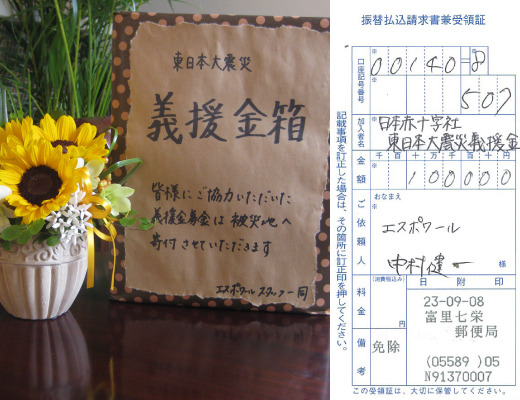 東日本大震災
義援金箱
皆様にご協力いただいた
義援金募金は被災地へ
寄付させていただきます
エスポワールスタッフ一同
振替払込請求書兼受領証
口座記号番号
※
00140=8
※
507
加入者名
※
日本赤十字社
東日本大震災義援金
金額
千百十万千百十円
※
100000
ご依頼人
おなまえ
※
エスポワール
中村健一
様
料金
(消費税込み)
円
日附印
23-09-08
富里七栄
郵便局
(05589)05
N91370007
備考
免除
記載事項を訂正した場合は、その箇所に訂正印を押してください。
この受領証は、大切に保管してください。